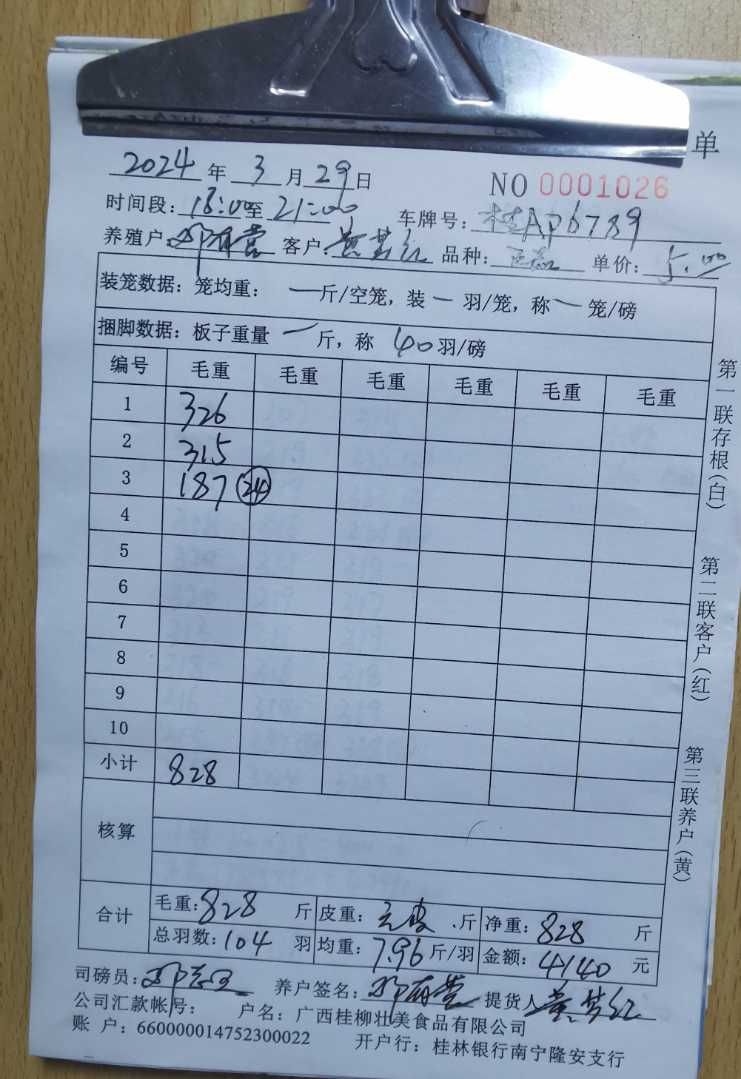 单
2024年3月29日 NO 0001026
时间段:18:00至21:00 车牌号:桂AP6789
养殖户: 客户:黄梦红 品种: 单价:5.00
装笼数据:笼均重:一斤/空笼,装一羽/笼,称一笼/磅
捆脚数据:板子重量一斤,称40羽/磅
编号 毛重 毛重 毛重 毛重 毛重 毛重
1 326
2 315
3 187 24
4
5
6
7
8
9
10
小计 828
核算
合计 毛重:828斤 皮重:无皮.斤 净重:828斤
总羽数:104羽 均重:7.96斤/羽 金额:4140元
司磅员: 养户签名: 提货人黄梦红
公司汇款帐号: 户名:广西桂柳壮美食品有限公司
账 户:660000014752300022 开户行:桂林银行南宁隆安支行
第一联存根(白)
第二联客户(红)
第三联养户(黄)